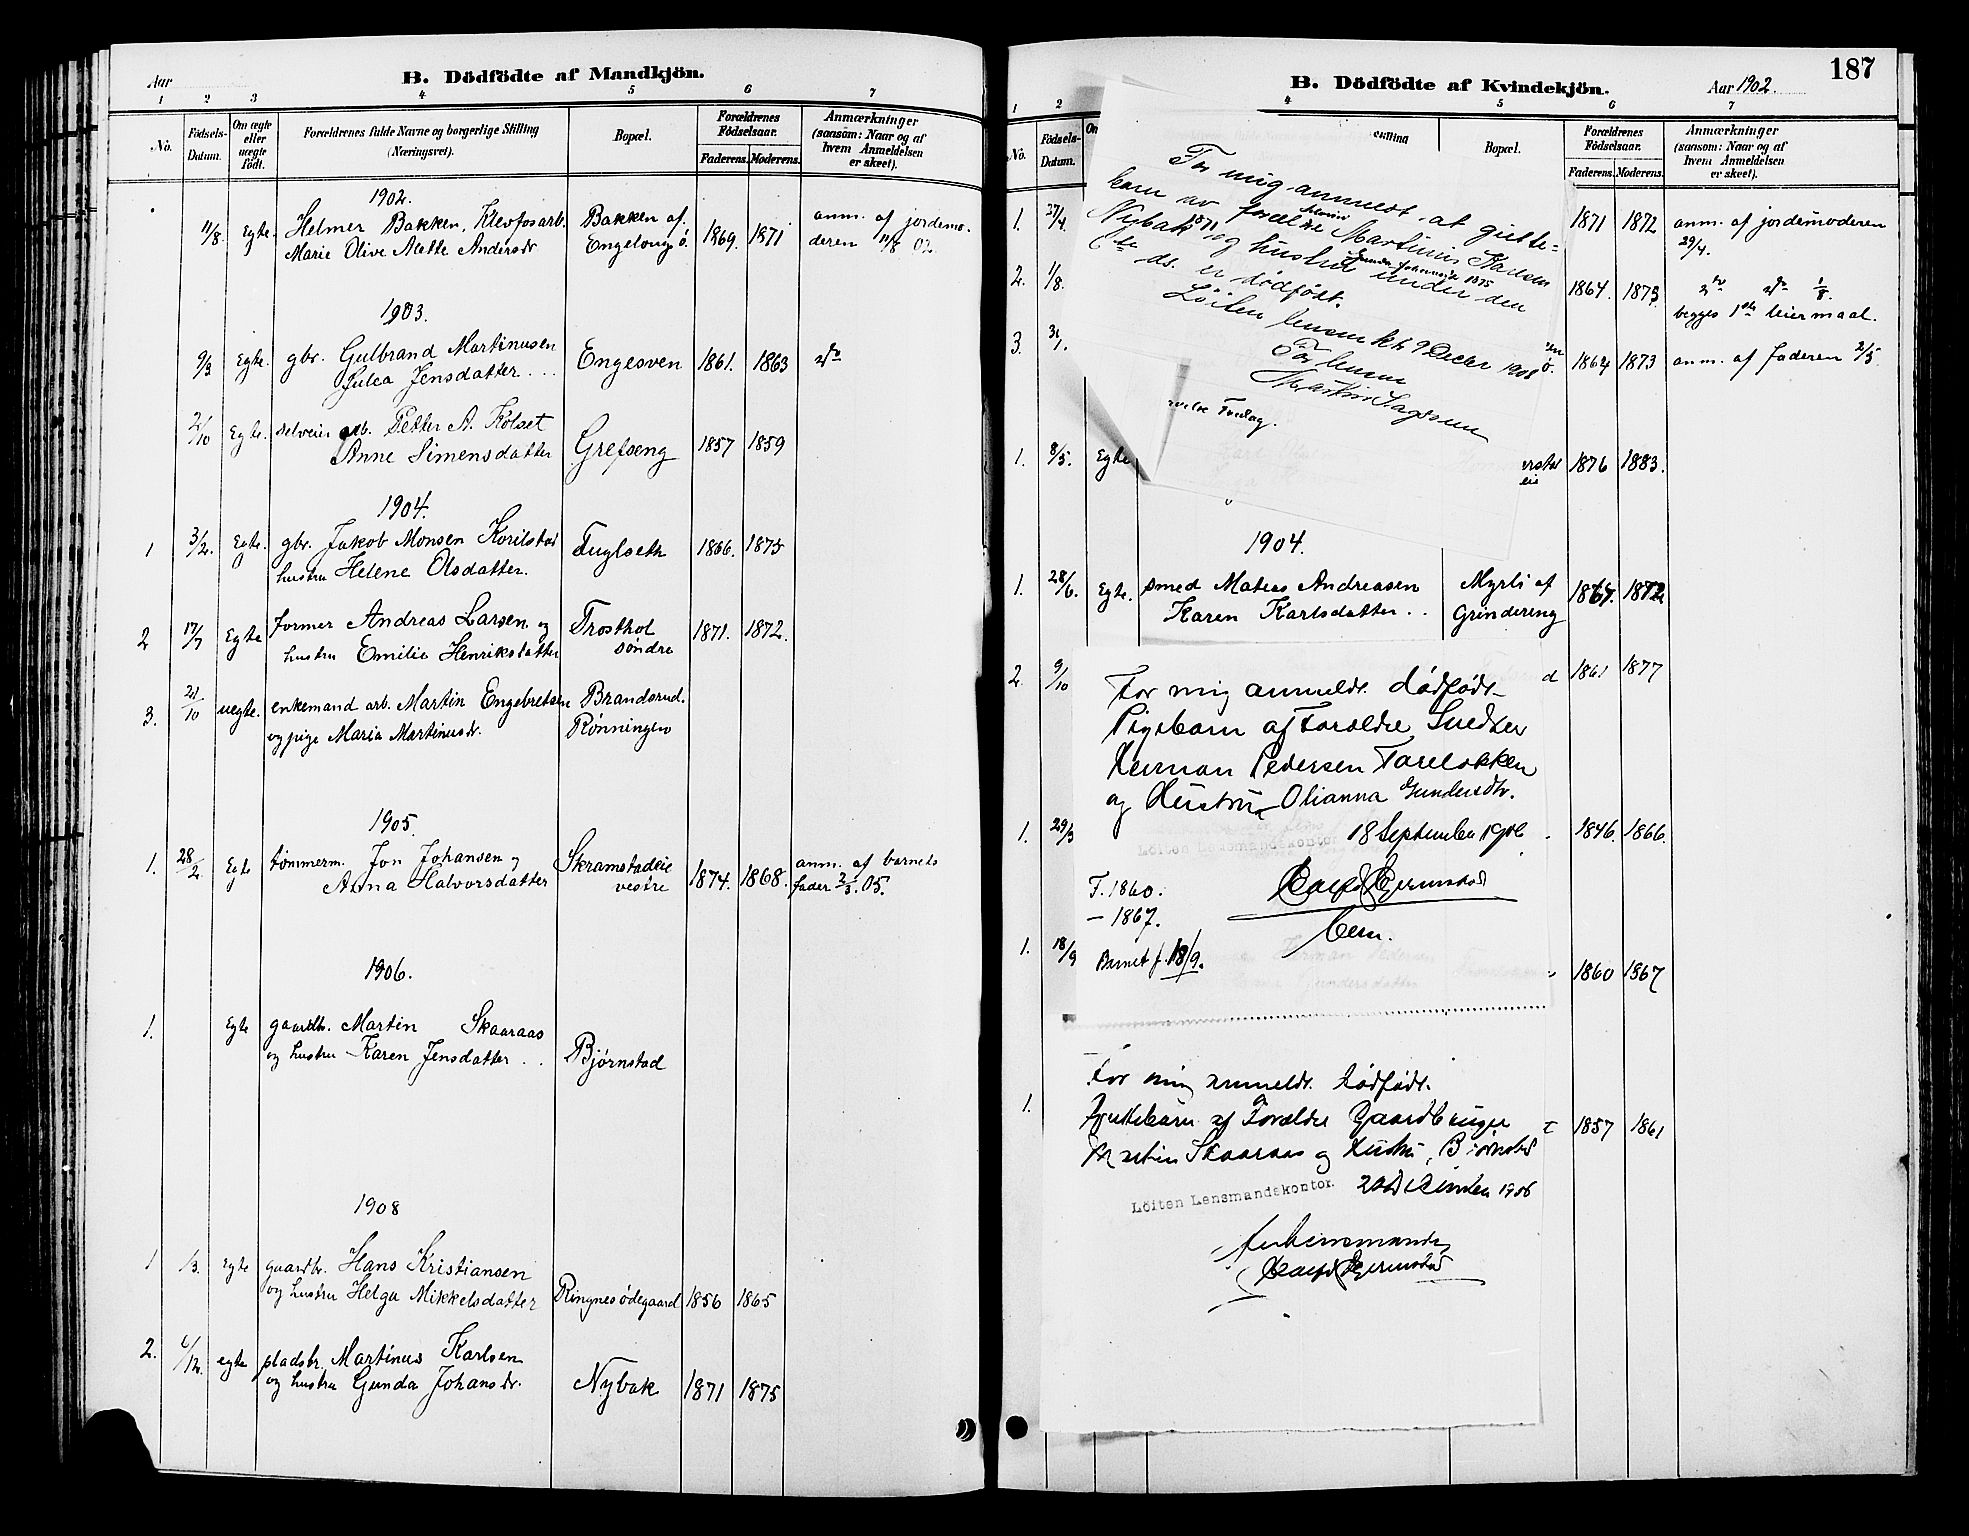 Aar
B. Dödfödte af Mandkjön.
1 2 3 4 5 6 7
No. Födsels-Datum. Om ægte eller uægte födt. Forældrenes fulde Navne og borgerlige Stilling (Næringsvei). Bopæl. Forældrenes Födselsaar. Faderens. Moderens. Anmærkninger (saasom: Naar og af hvem Anmeldelsen er skeet).
1902.
11/8. Egte. Helmer Bakken, Klevfosarb. Bakken af 1869. 1871 anm. af jordemo-
Marie Olive Mathea Andersdr Engelaug ö. deren 11/8 02
1903.
9/3 Egte. gbr. Gulbrand Martinusen Engesven 1861. 1863 do
Julia Jensdatter
2/10 Egte. selveier arb. Petter A. Kolset Grefseng 1857 1859
Anne Simensdatter
1904.
1 3/2. Egte. gbr. Jakob Monsen Korilstad Fuglseth 1866. 1875
hustru Helene Olsdatter.
2 17/7 Egte former Andreas Larsen og Trosthol 1871. 1872.
hustru Emilie Henriksdatter søndre
3. 21/10 uegte. enkemand arb. Martin Engebretsen Brandsrud.
og pige Maria Martinusdr. Rønningen
1905.
1. 28/2 Egte tømmerm. Jon Johansen og Skramstadeie 1874. 1868. anm. af barnets
Anna Halvorsdatter vestre fader 2/3. 05.
1906.
1. Egte gaardb. Martin Skaaraas
og hustru Karen Jensdatter Bjørnstad
1908
1 1/3. Egte gaardbr. Hans Kristiansen
og hustru Helga Mikkelsdatter Ringnes ødegaard 1856 1865
2. 6/12. egte pladsbr. Martinus Karlsen
og hustru Gunda Johansdr. Nybak 1871 1875
187
B. Dödfödte af Kvindekjön. Aar 1902.
1 2 4 5 6 7
No. Födsels-Datum. Om Stilling Bopæl. Forældrenes Födselsaar. Faderens. Moderens. Anmærkninger (saasom: Naar og af hvem Anmeldelsen er skeet).
For mig anmeldt at gutte-
barn av forældre Martinus Karlsen
Nybak 1871 og hustru Gunda Johansdr. 1875 under den
6te ds. er dødfødt.
Löiten lensm.kt. 9 Decbr 1908
For lensm
1. 27/4. 1871 1872 anm. af jordemoderen
29/4.
2. 1/8. 1864. 1873. do do 1/8.
begges 1ste leiermaal.
3. 31/1. 1864 1873 anm. af faderen 2/5
1. 8/5. Egte 1876 1883.
1904.
1. 28/6. Egte. smed Mateas Andreasen Myrli af 1867. 1872
Karen Karlsdatter Grindereng
2. 9/10 d 1861 1877
For mig anmeldt dødfødt
Pigebarn af Foreldre Snedker
Herman Pedersen Fareløkken
og Hustru Olianna Gundersdtr.
18 September 1906
Löiten Lensmandskontor
1. 29/3 1846. 1866.
F. 1860.
— 1867.
Barnet f. 18/9.
1. 18/9 1860 1867
For mig anmeldt dødfødt
Guttebarn af Forældre Gaardbruger
Martin Skaaraas og Hustru, Bjørnstad
Löiten Lensmandskontor. 20 December 1906
1. 1857 1861